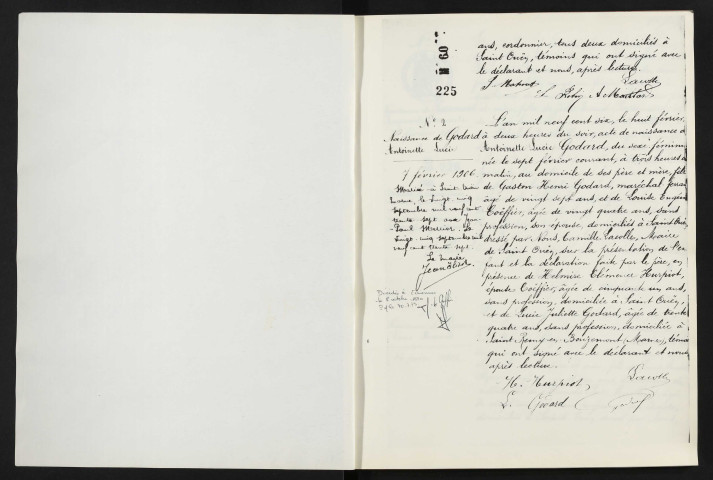 ans, cordonnier, tous deux domiciliés à
Saint Ouën, témoins qui ont signé avec
le déclarant et nous, après lecture.
M 60
225
N° 2
Naissance de Godard
Antoinette Lucie
7 février 1906
Mariée à Saint
le vingt cinq
septembre mil neuf cent
trente sept avec Jean
Paul Mercier. Le
vingt cinq septembre mil
neuf cent trente sept.
Le Maire
Décédée à
L'an mil neuf cent six, le huit février
à deux heures du soir, acte de naissance de
Antoinette Lucie Godard, du sexe féminin
née le sept février courant, à trois heures du
matin, au domicile de ses père et mère, fille
de Gaston Henri Godard, maréchal ferrant
âgé de vingt sept ans, et de Louise Eugénie
Coëffier, âgée de vingt quatre ans, sans
profession, son épouse, domiciliés à Saint Ouën
dressé par Nous, Camille Lacolle, Maire
de Saint Ouën, sur la présentation de l'en
fant et la déclaration faite par le père, en
présence de Helmire Clémence Hurpiot,
épouse Coëffier, âgée de cinquante un ans,
sans profession, domiciliée à Saint Ouën,
et de Lucie Juliette Godard, âgée de trente
quatre ans, sans profession, domiciliée à
Saint Remy en Bouzemont, Marne, témoins
qui ont signé avec le déclarant et nous
après lecture.
H. Hurpiot
L. Godard